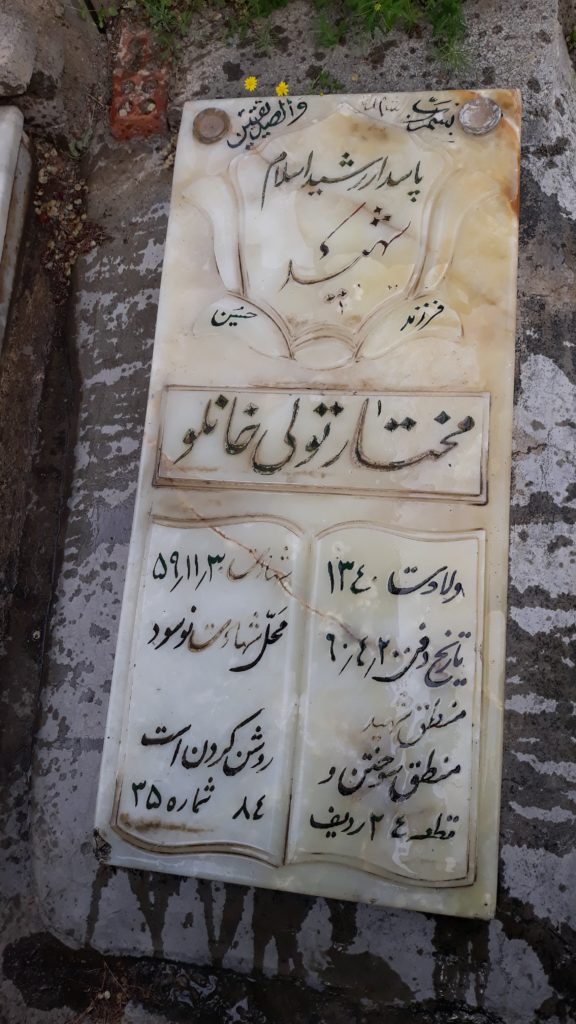 بسم رب الشهداء والصدیقین
پاسدار رشید اسلام
شهید
فرزند حسین
مختار تولی خانلو
ولادت ۱۳۴۰
تاریخ دفن ۶۰٫۴٫۲۰
منطق شهید
منطق سوختن و
قطعه ۲۴ ردیف
شهادت ۵۹٫۱۱٫۳
محل شهادت نوسود
روشن کردن است
۸۴ شماره ۳۵